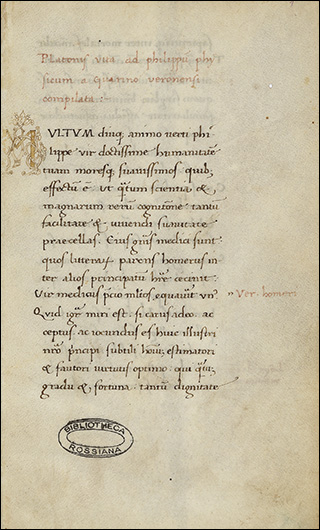 Platonis vita ad philippū phi
sicum a guarino veronensi
compilata:
MVLTVM diuq; animo uerti phi
lippe uir doctissime humanitatē
tuam moresq; suauissimos quib;
effectū ē ut q̄tum scientia &
magnarum rerū cognitione tantū
facilitate & uiuendi suauitate
praecellas. Eius gn̄is medici sunt
quos litteraꝝ parens homerus in
ter alios principatū hr̄e cecinit.
Vir medicus p̄cio ml̄tos equauit un̄ Ver. homeri
Quid igr̄ miri est si carus adeo ac
ceptus ac iocundus es huic illustri
nr̄o p̄ncipi subtili hoīuꝫ estimatori
& fautori uirtutis optimo qui
gradu & fortuna tantū dignitate
BIBLIOTHECA
ROSSIANA